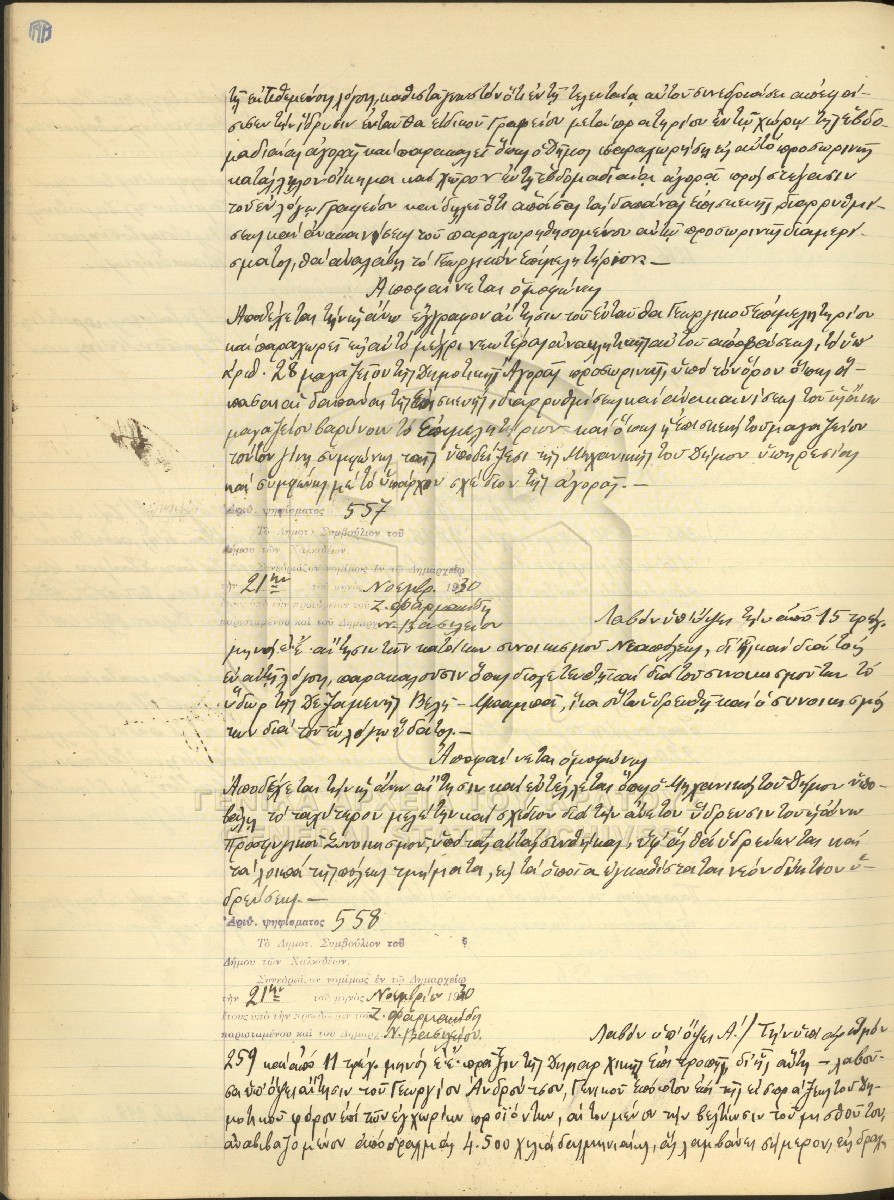 τῇ ἐκτιθεμένους λόγους, καθιστᾷ γνωστὸν ὅτι ἐν τῇ τελευταίᾳ αὐτοῦ συνεδριάσει ἀπεφά-
σισεν τὴν ἵδρυσιν ἐνταῦθα εἰδικοῦ Γραφείου μετὰ πρατηρίου ἐν τῷ χώρῳ τῆς ἑβδο-
μαδιαίας ἀγορᾶς καὶ παρακαλεῖ ὅπως ὁ Δῆμος παραχωρήσῃ εἰς αὐτὸ προσωρινῶς
κατάλληλον οἴκημα καὶ χῶρον ἐν τῇ ἑβδομαδιαίᾳ ἀγορᾷ πρὸς στέγασιν
τοῦ ἐν λόγῳ Γραφείου καὶ δηλοῖ ὅτι ἁπάσας τὰς δαπάνας ἐπισκευῆς, διαρρυθμί-
σεως καὶ ἀνακαινίσεως τοῦ παραχωρηθησομένου αὐτῷ προσωρινῶς διαμερί-
σματος, θὰ ἀναλάβῃ τὸ Γεωργικὸν Ἐπιμελητήριον. —
Ἀποφαίνεται ὁμοφώνως
Ἀποδέχεται τὴν ὡς ἄνω ἔγγραφον αἴτησιν τοῦ ἐνταῦθα Γεωργικοῦ Ἐπιμελητηρίου
καὶ παραχωρεῖ εἰς αὐτὸ μέχρι νεωτέρας ἀνακλητικῆς αὐτοῦ ἀποφάσεως, τὸ ὑπ'
ἀριθ. 28 μαγαζεῖον τῆς Δημοτικῆς Ἀγορᾶς προσωρινῶς, ὑπὸ τὸν ὅρον ὅπως ἅ-
πασαι αἱ δαπάναι τῆς ἐπισκευῆς, διαρρυθμίσεως καὶ ἀνακαινίσεως τοῦ ὡς ἄνω
μαγαζείου βαρύνουν τὸ Ἐπιμελητήριον καὶ ὅπως ἡ ἐπισκευὴ τοῦ μαγαζείου
τούτου γίνῃ συμφώνως ταῖς ὑποδείξεσι τῆς Μηχανικῆς τοῦ Δήμου ὑπηρεσίας
καὶ συμφώνως μὲ τὸ ὑπάρχον σχέδιον τῆς ἀγορᾶς. —
Ἀριθ. ψηφίσματος 557
Τὸ Δημοτ. Συμβούλιον τοῦ
Δήμου τῶν Χαλκιδέων
Συνεδριάζον νομίμως ἐν τῷ Δημαρχείῳ
τὴν 21ην τοῦ μηνὸς Νοεμβρ. 1930
ἔτους ὑπὸ τὴν προεδρείαν τοῦ Ζ. Φαρμακίδη
παρισταμένου καὶ τοῦ Δημάρχ. Ν. Βασιλείου
Λαβὸν ὑπ' ὄψει τὴν ἀπὸ 15 τρέχ.
μηνὸς ἐ.ἔ. αἴτησιν τῶν κατοίκων συνοικισμοῦ Νεαπόλεως, δι' ἧς καὶ διὰ τοὺς
ἐν αὐτῇ λόγους, παρακαλοῦσιν ὅπως διοχετευθῇ καὶ διὰ τοῦ συνοικισμοῦ των τὸ
ὕδωρ τῆς Δεξαμενῆς Βελῆ-Μπαμπᾶ, ἵνα οὕτω ὑδρευθῇ καὶ ὁ συνοικισμός
των διὰ τοῦ ἐν λόγῳ ὕδατος. —
Ἀποφαίνεται ὁμοφώνως
Ἀποδέχεται τὴν ὡς ἄνω αἴτησιν καὶ ἐντέλλεται ὅπως ὁ Μηχανικὸς τοῦ Δήμου ὑπο-
βάλῃ τὸ ταχύτερον μελέτην καὶ σχέδιον διὰ τὴν ἄνετον ὕδρευσιν τοῦ ὡς ἄνω
Προσφυγικοῦ Συνοικισμοῦ, ὑπὸ τὰς αὐτὰς συνθήκας, ὑφ' ἃς θὰ ὑδρεύωνται καὶ
τὰ λοιπὰ τῆς πόλεως τμήματα, εἰς τὰ ὁποῖα ἐγκαθίσταται νέον δίκτυον ὑ-
δρεύσεως. —
ΓΕΝΙΚΑ ΑΡΧΕΙΑ ΤΟΥ ΚΡΑΤΟΥΣ
GENERAL STATE ARCHIVES
Ἀριθ. ψηφίσματος 558
Τὸ Δημοτ. Συμβούλιον τοῦ
Δήμου τῶν Χαλκιδέων.
Συνεδριάζον νομίμως ἐν τῷ Δημαρχείῳ
τὴν 21ην τοῦ μηνὸς Νοεμβρίου 1930
ἔτους ὑπὸ τὴν προεδρείαν τοῦ Ζ. Φαρμακίδη
παρισταμένου καὶ τοῦ Δημάρχ. Ν. Βασιλείου.
Λαβὸν ὑπ' ὄψει Α'./ Τὴν ὑπ' ἀριθμὸν
259 καὶ ἀπὸ 11 τρέχ. μηνὸς ἐ.ἔ. πρᾶξιν τῆς Δημαρχικῆς Ἐπιτροπῆς, δι' ἧς αὕτη — λαβοῦ-
σα ὑπ' ὄψει αἴτησιν τοῦ Γεωργίου Ἀνδρούτσου, Γενικοῦ Ἐπόπτου ἐπὶ τῆς εἰσπράξεως τοῦ Δη-
μοτικοῦ φόρου ἐπὶ τῶν ἐγχωρίων προϊόντων, αἰτουμένου τὴν βελτίωσιν τοῦ μισθοῦ του,
ἀναβιβαζομένου ἀπὸ δραχμὰς 4.500 χιλιάδας μηνιαίως, ἃς λαμβάνει σήμερον, εἰς δραχ.